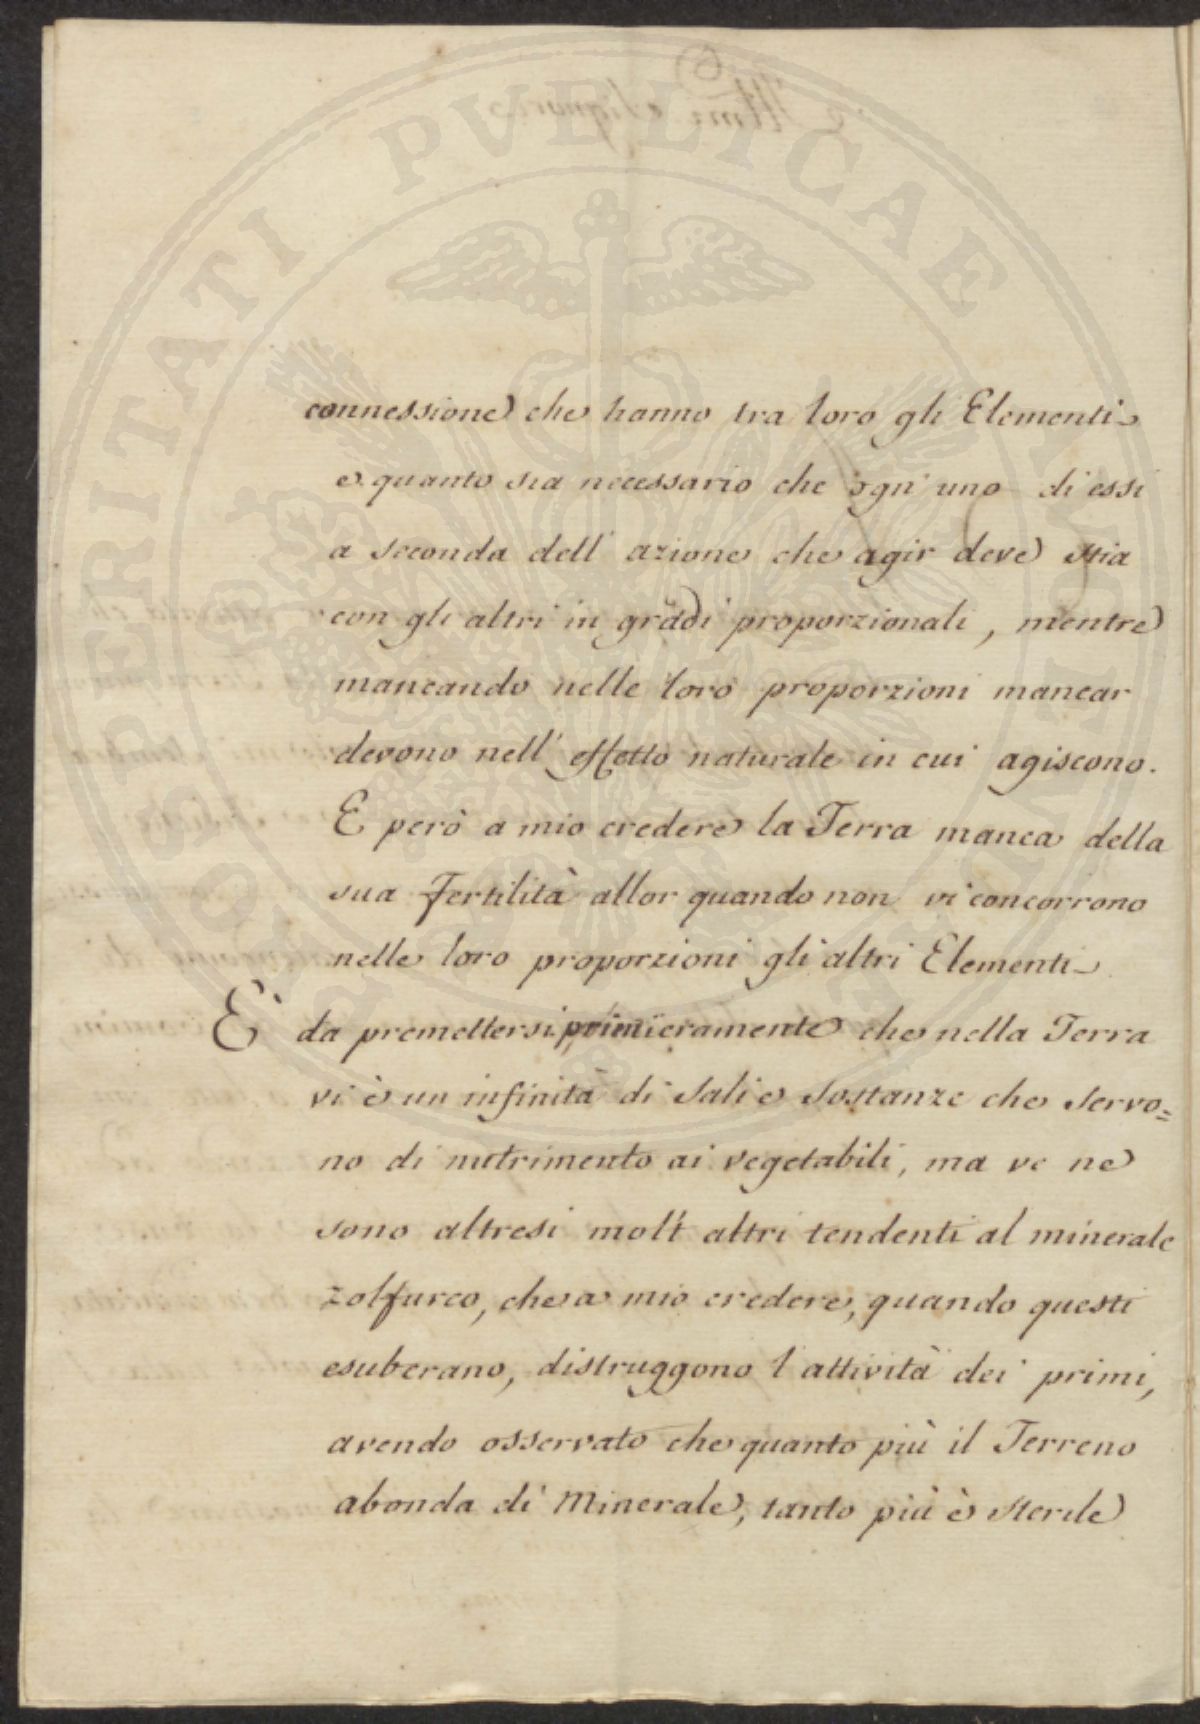 PROSPERITATI PVBLICAE AVGENDAE
connessione che hanno tra loro gli Elementi
e quanto sia necessario che ogn' uno di essi
a seconda dell' azione che agir deve stia
con gli altri in gradi proporzionali, mentre
mancando nelle loro proporzioni mancar
devono nell' effetto naturale in cui agiscono.
E però a mio credere la Terra manca della
sua fertilità allor quando non vi concorrono
nelle loro proporzioni gli altri Elementi
E' da premettersi primieramente che nella Terra
vi è un infinità di Sali e Sostanze che servo=
no di nutrimento ai vegetabili, ma ve ne
sono altresi molt' altri tendenti al minerale
zolfureo, che a mio credere, quando questi
esuberano, distruggono l'attività dei primi,
avendo osservato che quanto più il Terreno
abonda di Minerale, tanto più è sterile